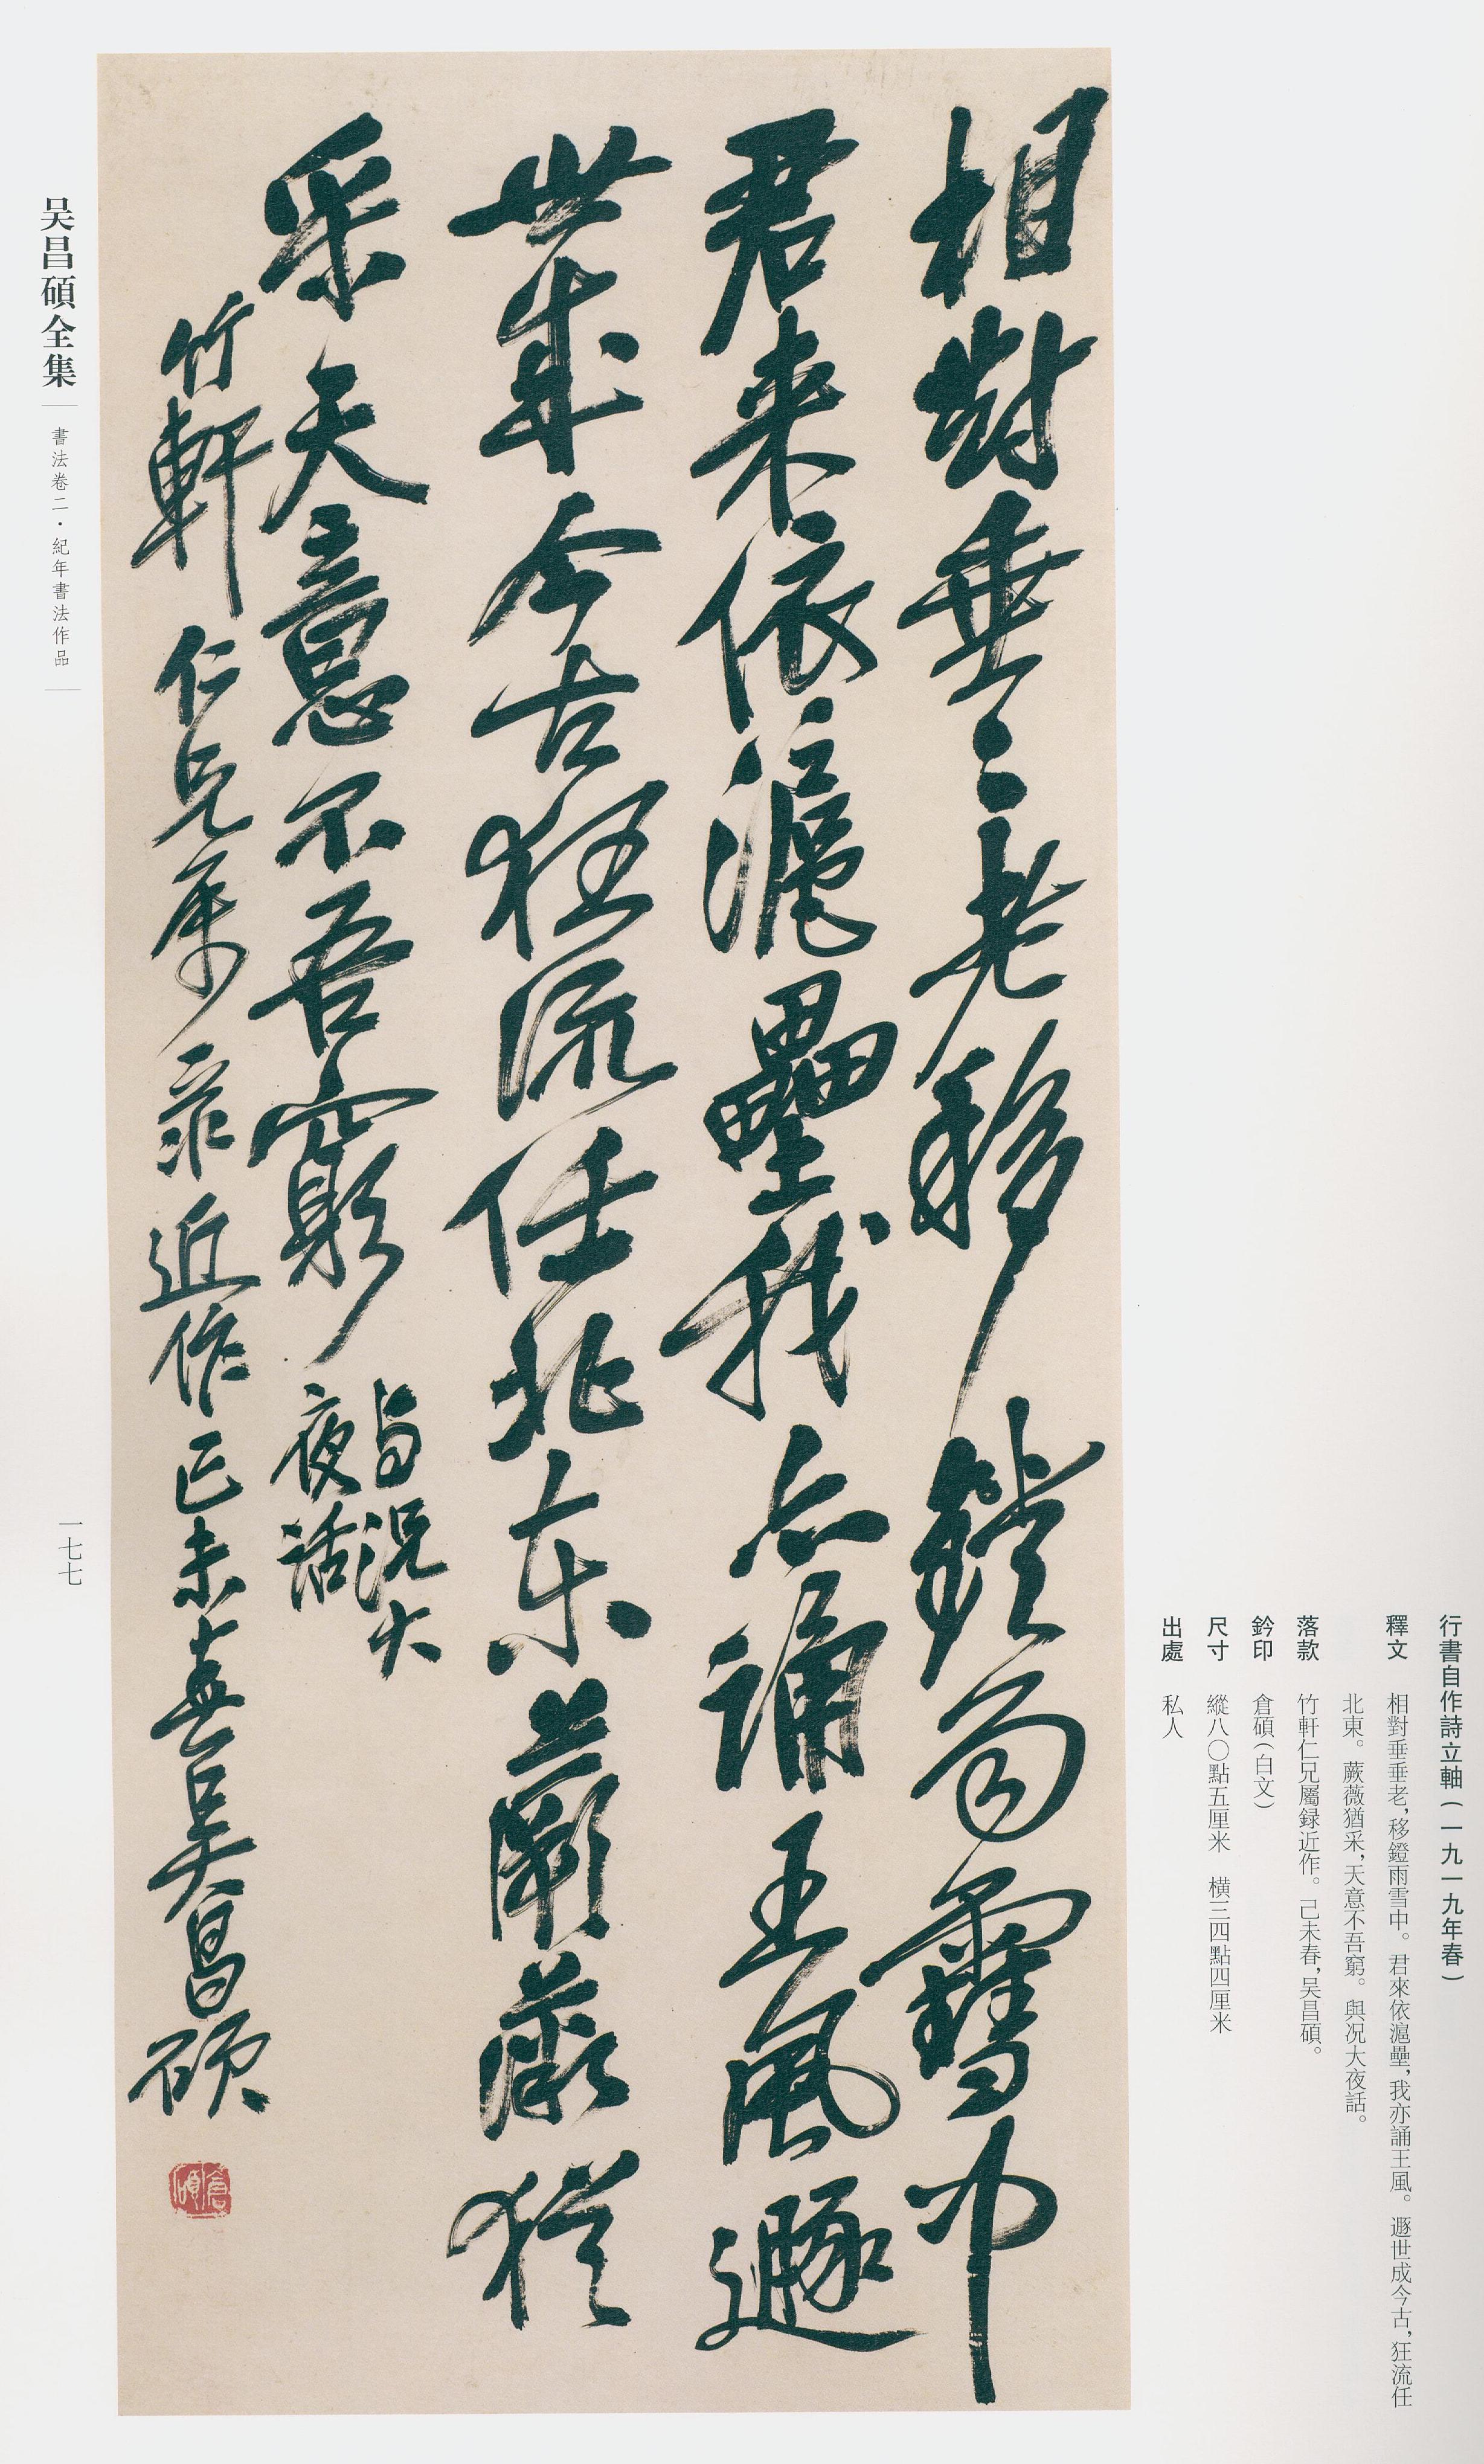 行書自作詩立軸（一九一九年春）
釋文　相對垂垂老，移鐙雨雪中。君來依滬壘，我亦誦王風。遯世成今古，狂流任
北東。蕨薇猶采，天意不吾窮。與况大夜話。
落款　竹軒仁兄屬録近作。己未春，吴昌碩。
鈐印　倉碩（白文）
尺寸　縱八〇點五厘米　橫三四點四厘米
出處　私人
相對垂〻老移鐙雨雪中
君来依滬壘我亦誦王風遯
世成今古狂流任北東蕨薇猶
采天意不吾窮
與況大
夜話
竹軒仁兄屬録近作己未春吴昌碩
倉碩
吴昌碩全集
書法卷二・紀年書法作品
一七七